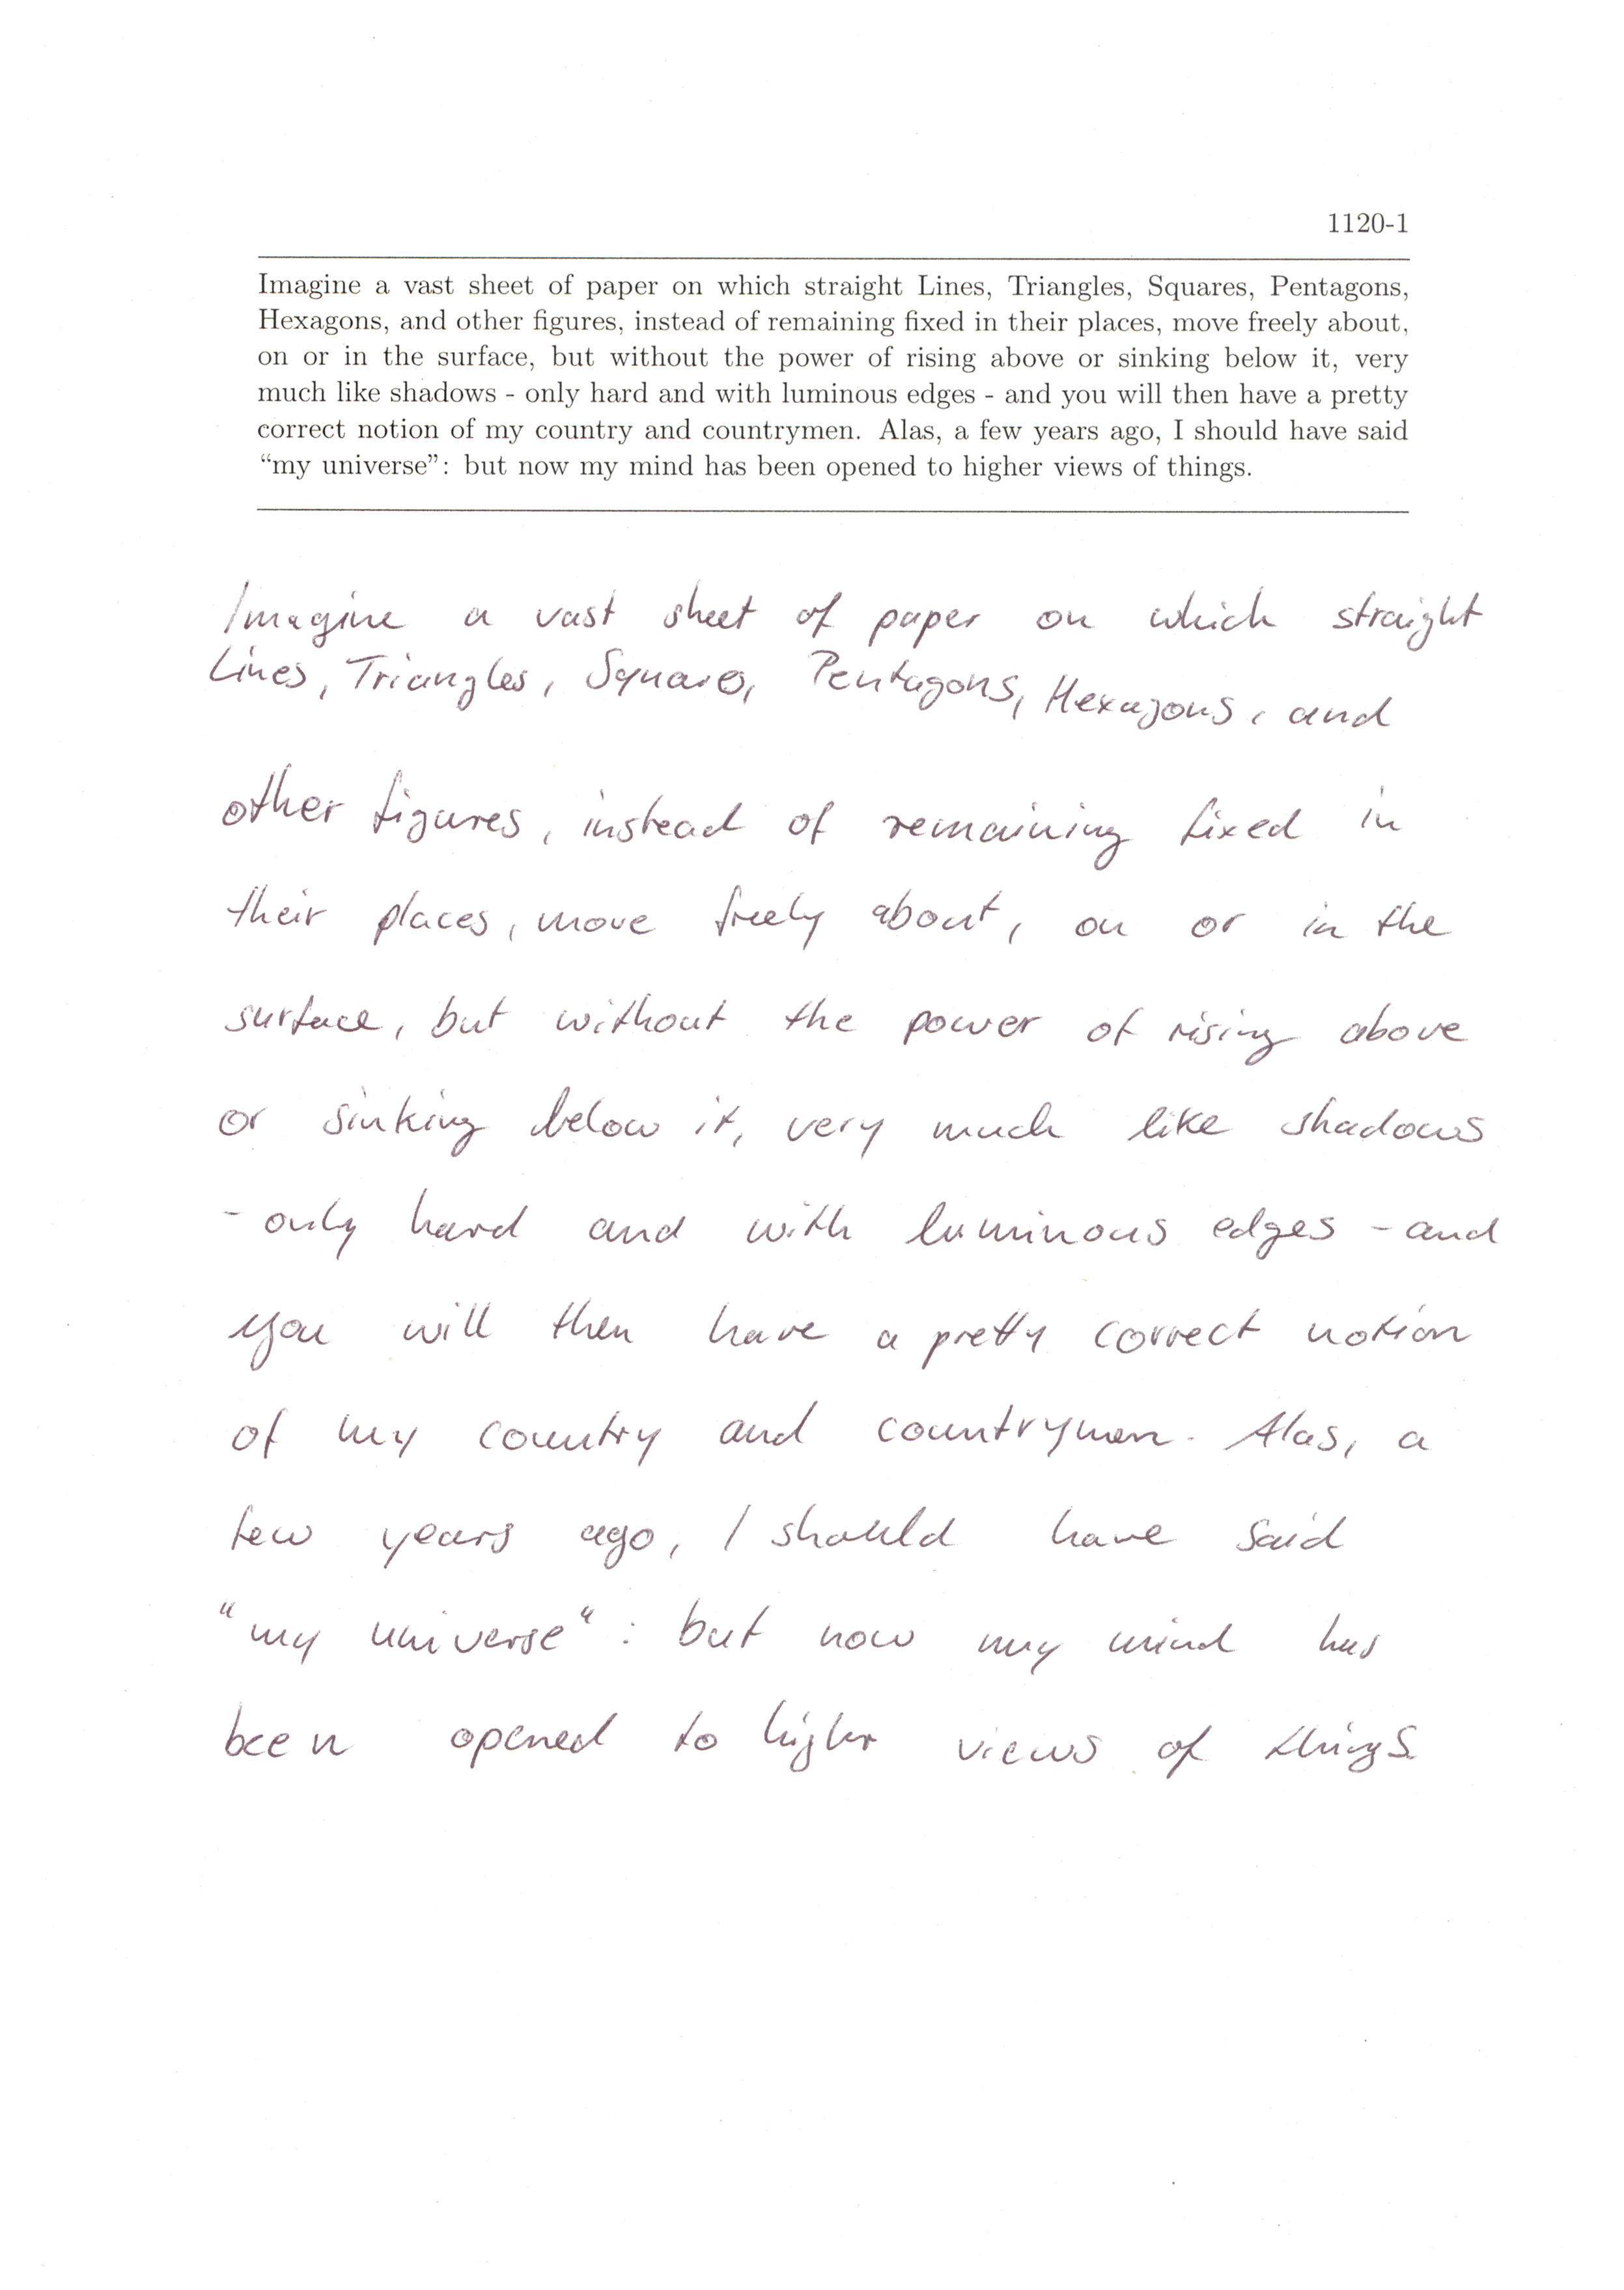 1120-1
Imagine a vast sheet of paper on which straight Lines, Triangles, Squares, Pentagons,
Hexagons, and other figures, instead of remaining fixed in their places, move freely about,
on or in the surface, but without the power of rising above or sinking below it, very
much like shadows - only hard and with luminous edges - and you will then have a pretty
correct notion of my country and countrymen. Alas, a few years ago, I should have said
“my universe”: but now my mind has been opened to higher views of things.
Imagine a vast sheet of paper on which straight
Lines, Triangles, Squares, Pentagons, Hexagons, and
other figures, instead of remaining fixed in
their places, move freely about, on or in the
surface, but without the power of rising above
or sinking below it, very much like shadows
- only hard and with luminous edges - and
you will then have a pretty correct notion
of my country and countrymen. Alas, a
few years ago, I should have said
"my universe": but now my mind has
been opened to higher views of things.